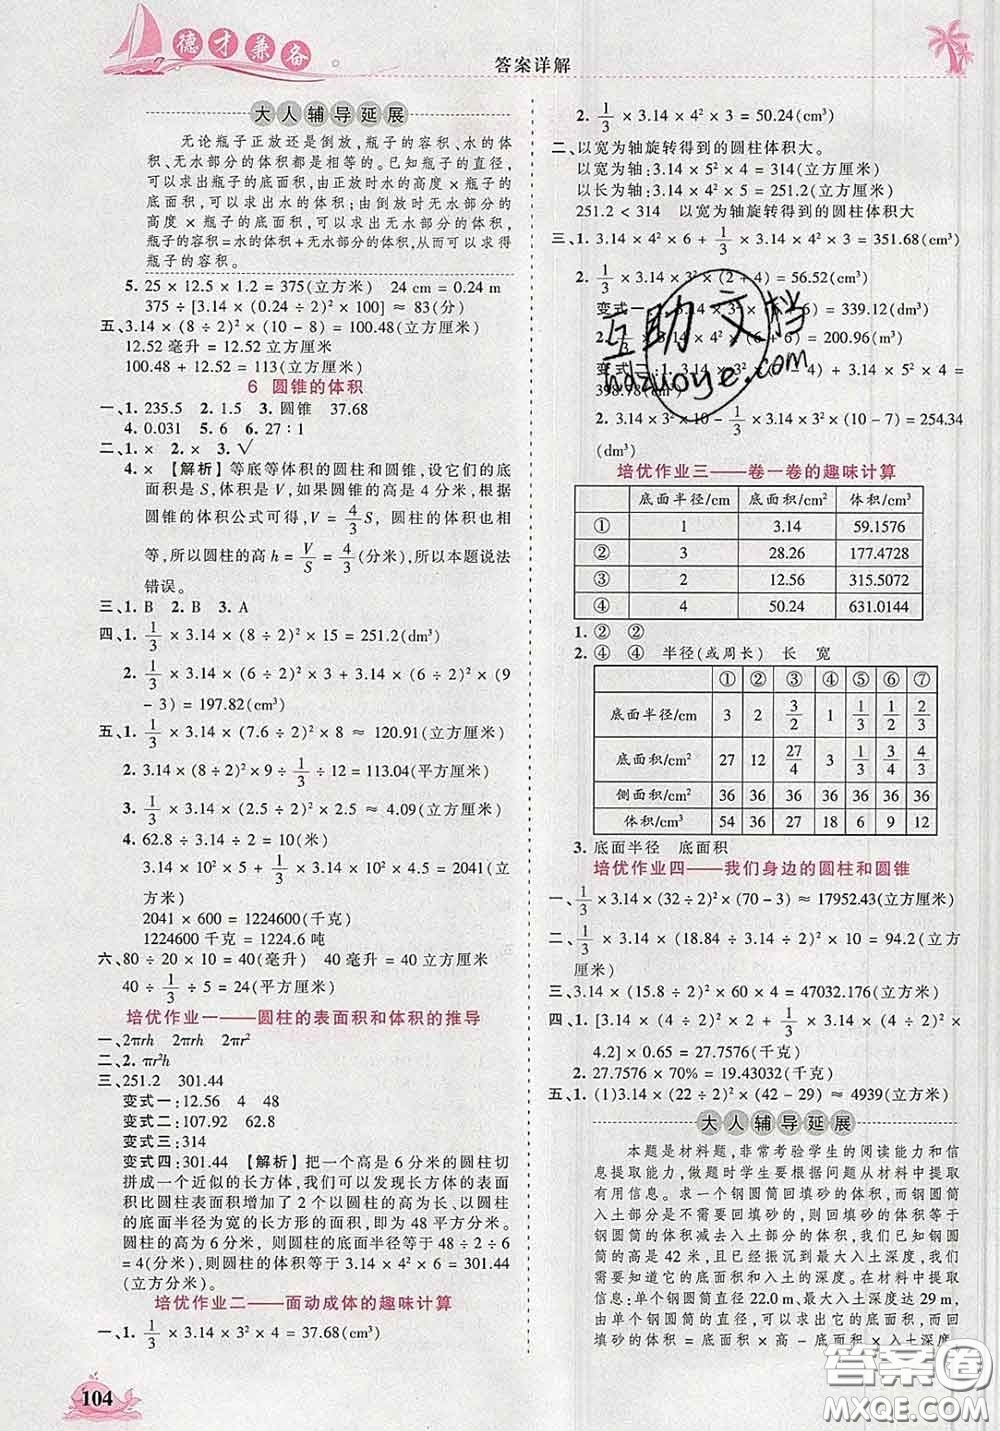 德才兼备
答案详解
大人辅导延展
无论瓶子正放还是倒放,瓶子的容积、水的体
积、无水部分的体积都是相等的。已知瓶子的直径,
可以求出瓶子的底面积;由正放时水的高度 × 瓶子的
底面积,可以求出水的体积;由倒放时无水部分的
高度 × 瓶子的底面积,可以求出无水部分的体积,
瓶子的容积=水的体积+无水部分的体积,从而可以求得
瓶子的容积。
5. 25 × 12.5 × 1.2 = 375(立方米)　24 cm = 0.24 m
375 ÷ [3.14 × (0.24 ÷ 2)² × 100] ≈ 83(分)
五、3.14 × (8 ÷ 2)² × (10 - 8) = 100.48(立方厘米)
12.52 毫升 = 12.52 立方厘米
100.48 + 12.52 = 113(立方厘米)
6　圆锥的体积
一、1. 235.5　2. 1.5　3. 圆锥　37.68
4. 0.031　5. 6　6. 27∶1
二、1. ×　2. ×　3. √
4. ×　【解析】等底等体积的圆柱和圆锥,设它们的底
面积是 S,体积是 V,如果圆锥的高是 4 分米,根据
圆锥的体积公式可得,V = 4/3 S, 圆柱的体积也相
等,所以圆柱的高 h = V/S = 4/3(分米),所以本题说法
错误。
三、1. B　2. B　3. A
四、1. 1/3 × 3.14 × (8 ÷ 2)² × 15 = 251.2(dm³)
2. 1/3 × 3.14 × (6 ÷ 2)² × 3 + 3.14 × (6 ÷ 2)² × (9
- 3) = 197.82(cm³)
五、1. 1/3 × 3.14 × (7.6 ÷ 2)² × 8 ≈ 120.91(立方厘米)
2. 3.14 × (8 ÷ 2)² × 9 ÷ 1/3 ÷ 12 = 113.04(平方厘米)
3. 1/3 × 3.14 × (2.5 ÷ 2)² × 2.5 ≈ 4.09(立方厘米)
4. 62.8 ÷ 3.14 ÷ 2 = 10(米)
3.14 × 10² × 5 + 1/3 × 3.14 × 10² × 4.5 = 2041(立方
米)
2041 × 600 = 1224600(千克)
1224600 千克 = 1224.6 吨
六、80 ÷ 20 × 10 = 40(毫升)　40 毫升 = 40 立方厘米
40 ÷ 1/3 ÷ 5 = 24(平方厘米)
培优作业一——圆柱的表面积和体积的推导
一、2πrh　πrh　2πr²
二、2. πr²h
三、251.2　301.44
变式一:12.56　4　48
变式二:107.92　62.8
变式三:314
变式四:301.44　【解析】把一个高是 6 分米的圆柱切
拼成一个近似的长方体,我们可以发现长方体的表面
积比圆柱表面积增加了 2 个以圆柱的高为长、以圆柱
的底面半径为宽的长方形的面积,即为 48 平方分米。
圆柱的高为 6 分米, 则圆柱的底面半径为 48 ÷ 2 ÷ 6
= 4(分米),则圆柱的体积 = 3.14 × 4² × 6 = 301.44
(立方分米)。
培优作业二——面动成体的趣味计算
一、1. 1/3 × 3.14 × 3² × 4 = 37.68(cm³)
2. 1/3 × 3.14 × 4² × 3 = 50.24(cm³)
二、以宽为轴旋转得到的圆柱体积大。
以宽为轴:3.14 × 5² × 4 = 314(立方厘米)
以长为轴:3.14 × 4² × 5 = 251.2(立方厘米)
251.2 < 314　以宽为轴旋转得到的圆柱体积大
三、1. 3.14 × 4² × 6 + 1/3 × 3.14 × 4² × 3 = 351.68(cm³)
2. 1/3 × 3.14 × 3² × (2 + 4) = 56.52(cm³)
变式一:
= 339.12(dm³)
= 200.96(m³)
变式二:1.
× 3.14 × 3² × 4.5 + 3.14 × 3² × 4.5 =
398.78(cm³)
2. 3.14 × 3² × 10 - 1/3 × 3.14 × 3² × (10 - 7) = 254.34
(cm³)
培优作业三——卷一卷的趣味计算
底面半径/cm　底面积/cm²　体积/cm³
①　1　3.14　59.1576
②　3　28.26　177.4728
③　2　12.56　315.5072
④　4　50.24　631.0144
1. ②　②
2. ④　④　半径(或周长)　长　宽
①　②　③　④　⑤　⑥　⑦
底面半径/cm　3　2　3/2　1　1/3　1/2　2/3
底面积/cm²　27　12　27/4　3　1/3　3/4　4/3
侧面积/cm²　36　36　36　36　36　36　36
体积/cm³　54　36　27　18　6　9　12
3. 底面半径　底面积
培优作业四——我们身边的圆柱和圆锥
一、1/3 × 3.14 × (32 ÷ 2)² × (70 - 3) ≈ 17952.43(立方厘米)
二、1/3 × 3.14 × (18.84 ÷ 3.14 ÷ 2)² × 10 = 94.2(立方
厘米)
三、3.14 × (15.8 ÷ 2)² × 60 × 4 = 47032.176(立方厘米)
四、1. [3.14 × (4 ÷ 2)² × 2 + 1/3 × 3.14 × (4 ÷ 2)² ×
4.2] × 0.65 = 27.7576(千克)
2. 27.7576 × 70% = 19.43032(千克)
五、1. (1)3.14 × (22 ÷ 2)² × (42 - 29) ≈ 4939(立方米)
大人辅导延展
本题是材料题,非常考验学生的阅读能力和信
息提取能力,做题时学生要根据问题从材料中提取
有用信息。求一个钢圆筒回填砂的体积,而钢圆筒
入土部分是不需要回填砂的,所以回填砂的体积等于
钢圆筒的体积减去入土部分的体积,我们已知钢圆
筒的高是 42 米,且已经振沉到最大入土深度,我们
需要知道它的底面积和入土的深度。在材料中有信
息:单个钢圆筒直径 22.0 m,入土深度达 29 m,
由单个钢圆筒的直径,可以求出它的底面积,而回
填砂的体积 = 底面积 × 高 - 底面积 × 入土深度。
104
互助文档
hdzuoye.com
答案圈
MXQE.COM